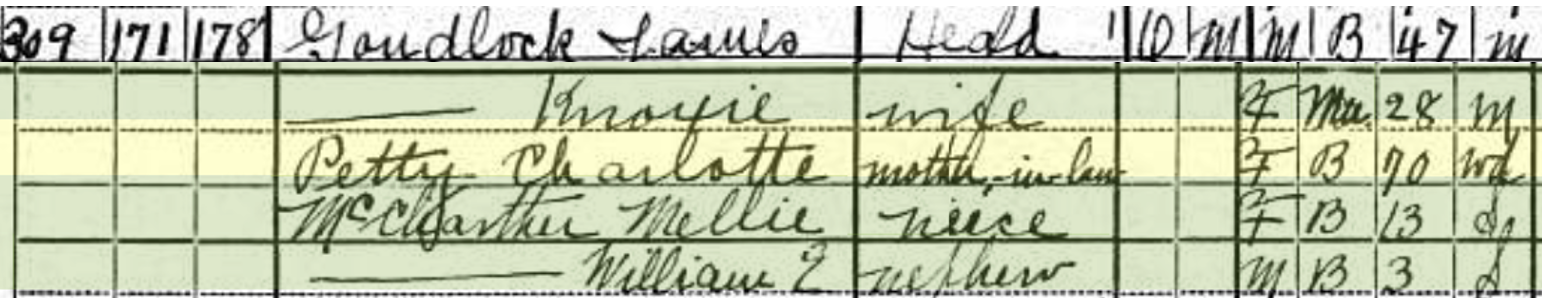 309 171 178 Goudlock James Head 1 O M M B 47 M
—— Knoxie wife F Mu 28 M
Petty Charlotte mother-in-law F B 70 Wd
McCarther Mellie neice F B 13 S
—— William E nephew M B 3 S